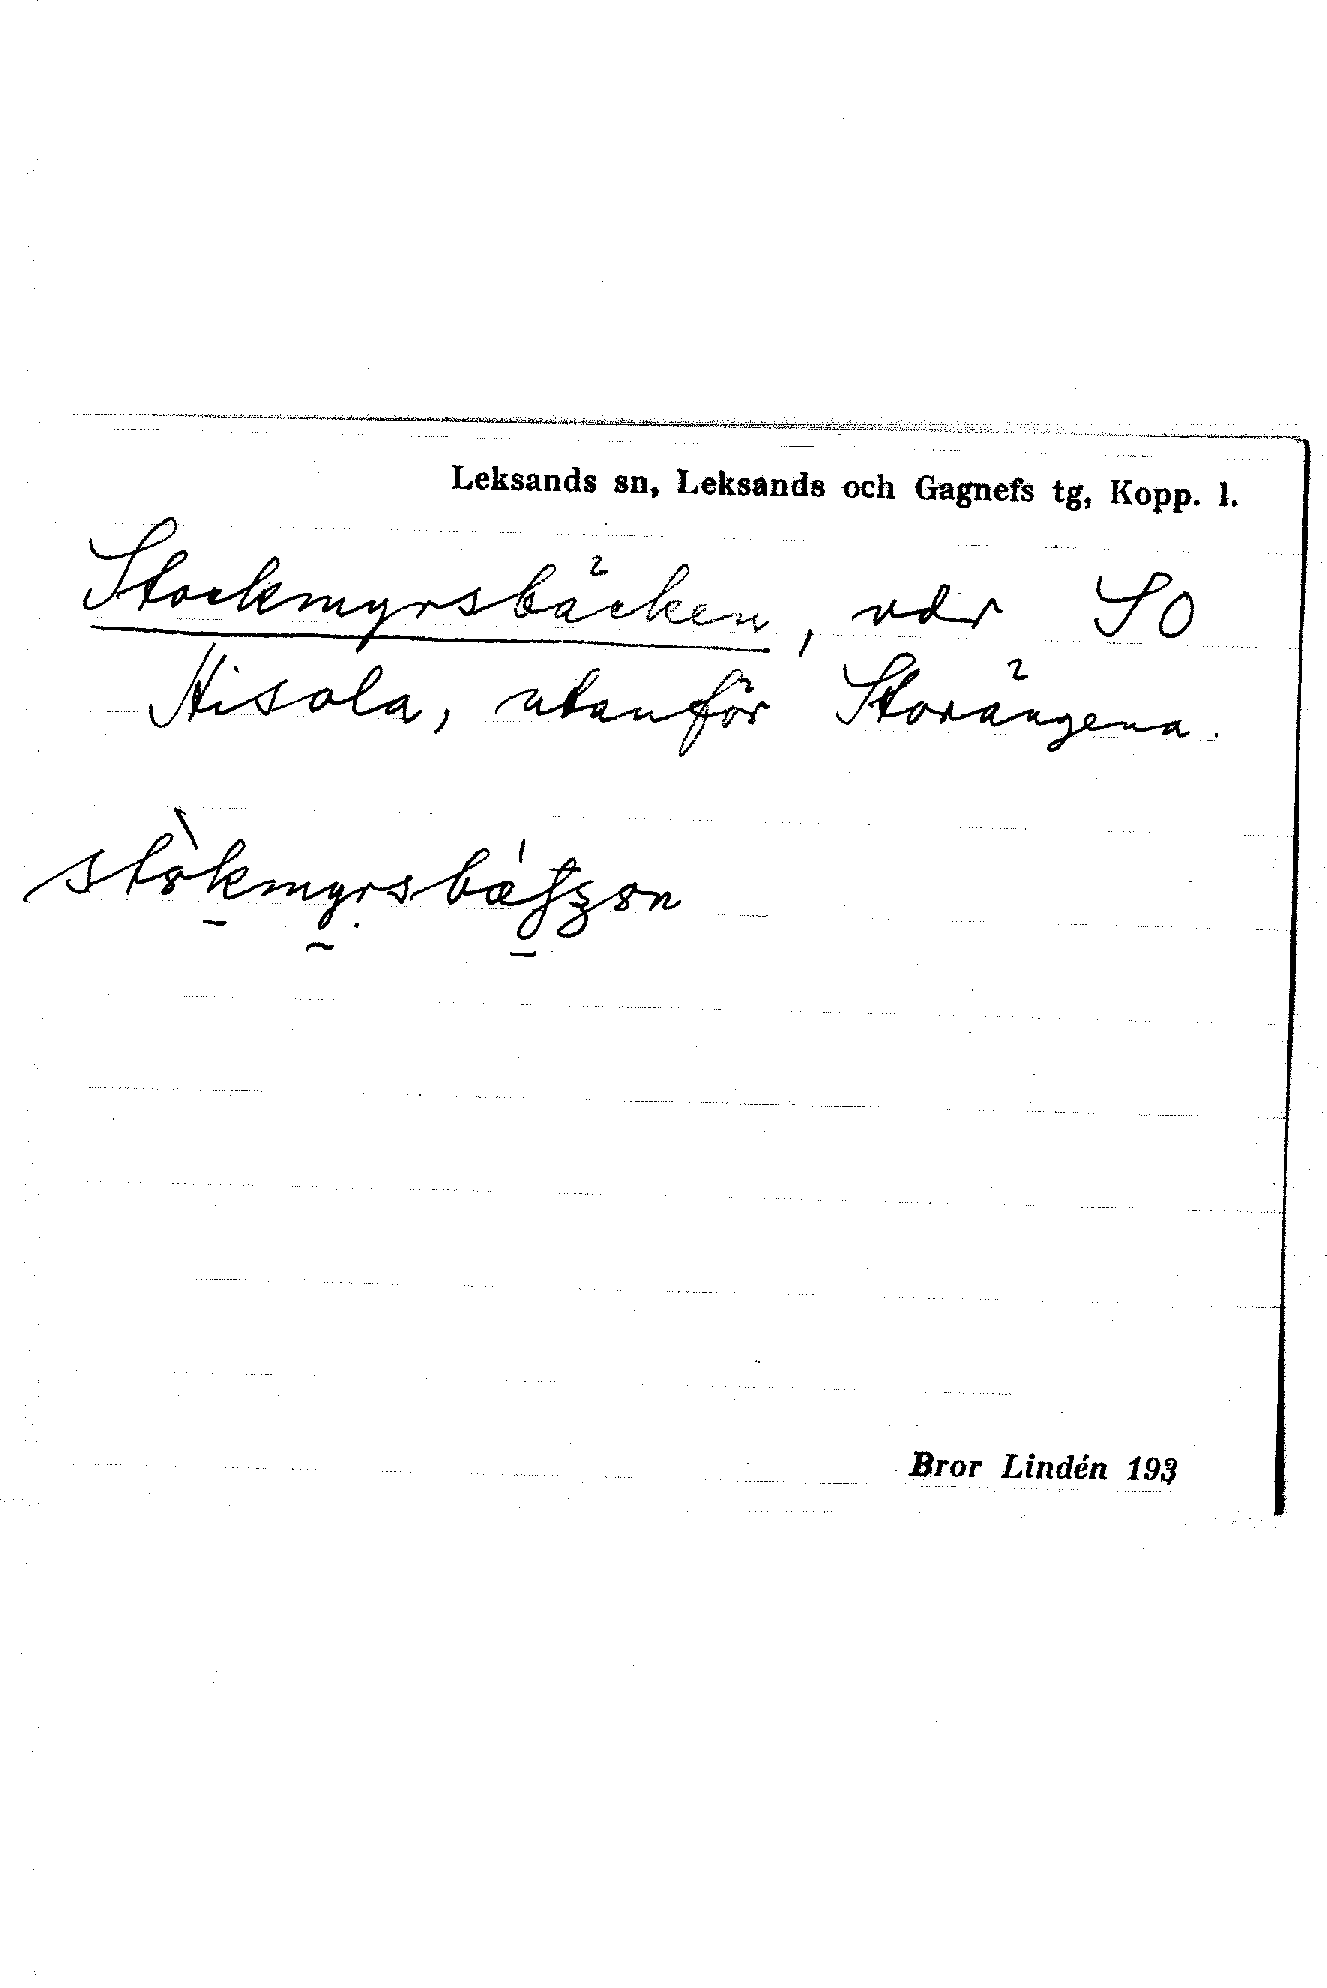 Leksands sn, Leksands och Gagnefs tg, Kopp. l.
Stockmyrsbäcken, vdr SO
Hisola, utanför Storängena.
Bror Lindén 193